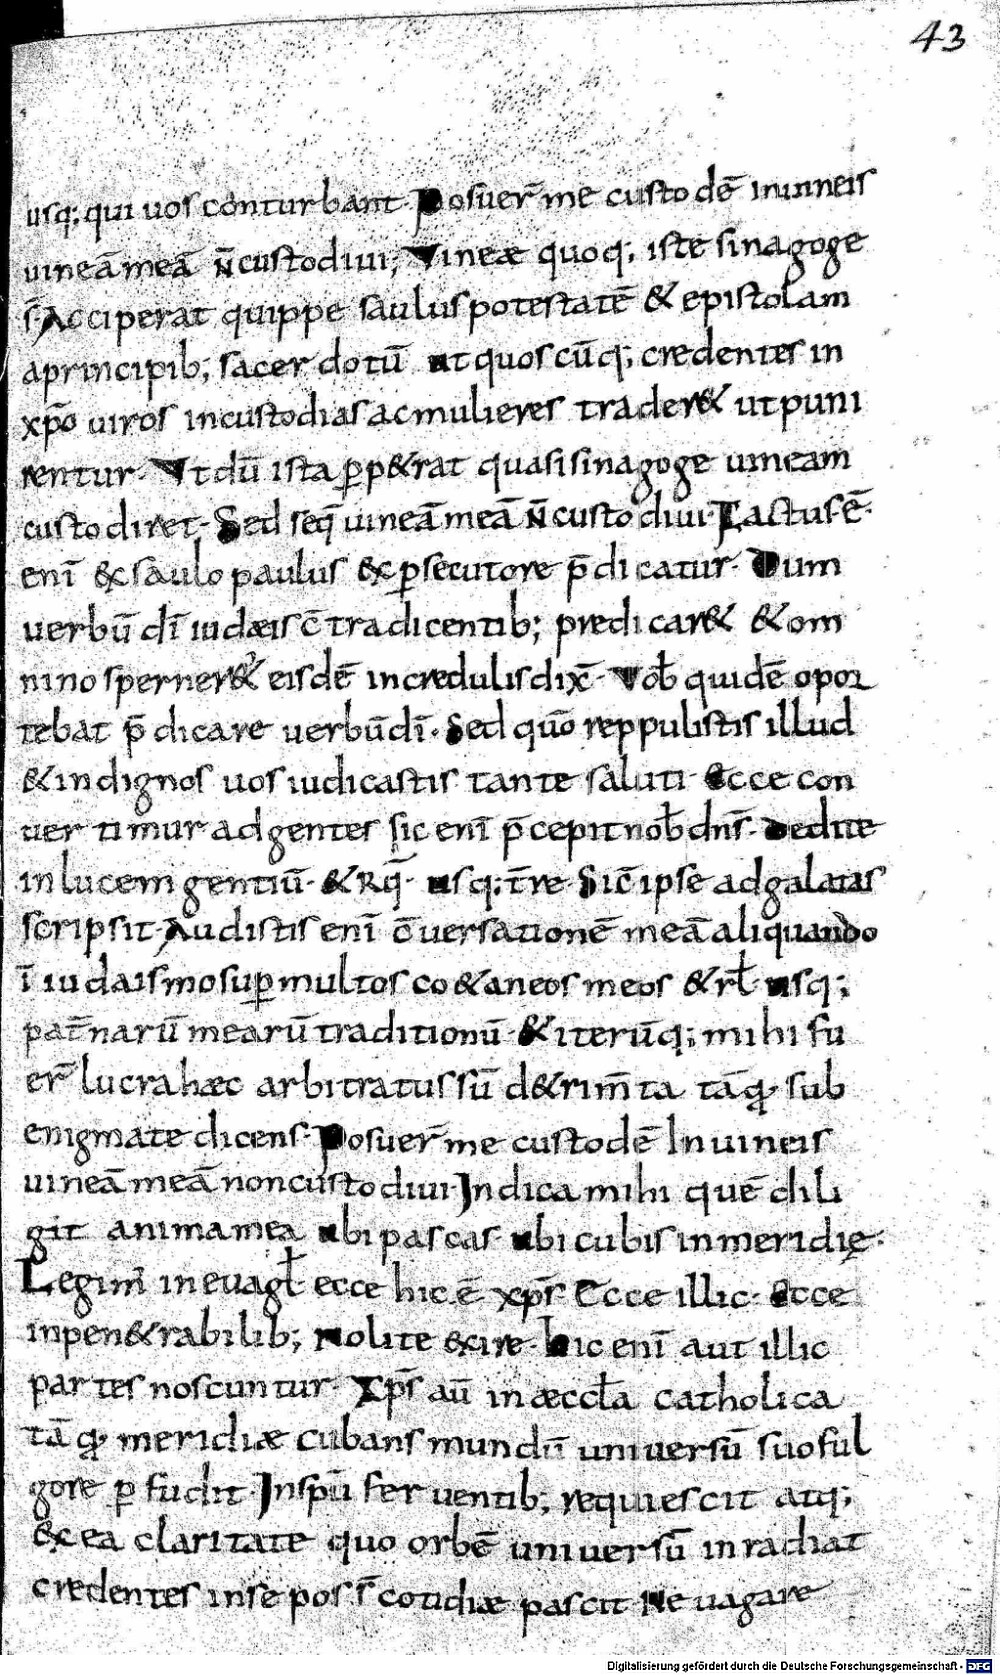 43
usq; qui uos conturbant. Posuer̄ me custodē inuineis
uineā meā n̄ custodiui; Vineæ quoq; iste sinagoge
s̄. Acciperat quippe saulus potestatē & epistolam
aprincipib; sacerdotū ut quoscūq; credentes in
xp̄o uiros incustodias ac mulieres trader& ut puni
rentur. Vt dū ista ꝑp&rat quasi sinagoge uineam
custodiret. Sed seq̄ uineā meā n̄ custodiui. Factus ē.
enī exsaulo paulus exꝑsecutore p̄dicatur. Dum
uerbū dī iudæis c̄tradicentib; predicar& & om
nino sperner& eisdē incredulis dix̄. Vob̄ quidē opor
tebat p̄dicare uerbū dī. Sed quō reppulistis illud
& indignos uos iudicastis tante saluti. Ecce con
uertimur adgentes sic enī p̄cepit nob̄ dn̄s. Dedi te
inlucem gentiū. & Rq̄. usq; t̄re. Sic̄ ipse adgalatas
scripsit. Audistis enī c̄uersationē meā aliquando
ī iudaismo suꝑ multos co&aneos meos & rł. usq;
pat̄narū mearū traditionū. & iterū q; mihi fu
er̄ lucra hæc arbitratus sū d&rim̄ta tāꝙ sub
enigmate dicens. Posuer̄ me custodē Inuineis
uineā meā non custodiui. Indica mihi quē dili
git anima mea ubi pascas ubi cubis inmeridię.
Legim̄ ineuagł ecce hic ē xp̄s. Ecce illic. Ecce
inpen&rabilib; Nolite exire. hic enī aut illic
partes noscuntur. Xp̄s aū inæccła catholica
tāꝙ meridiæ cubans mundū uniuersū suo ful
gore ꝑfudit. Inspū feruentib; requiescit atq;
ex ea claritate quo orbē uniuersū inradiat
credentes inse pos s̄ cotidiæ pascit. Ne uagare
Digitalisierung gefördert durch die Deutsche Forschungsgemeinschaft - DFG